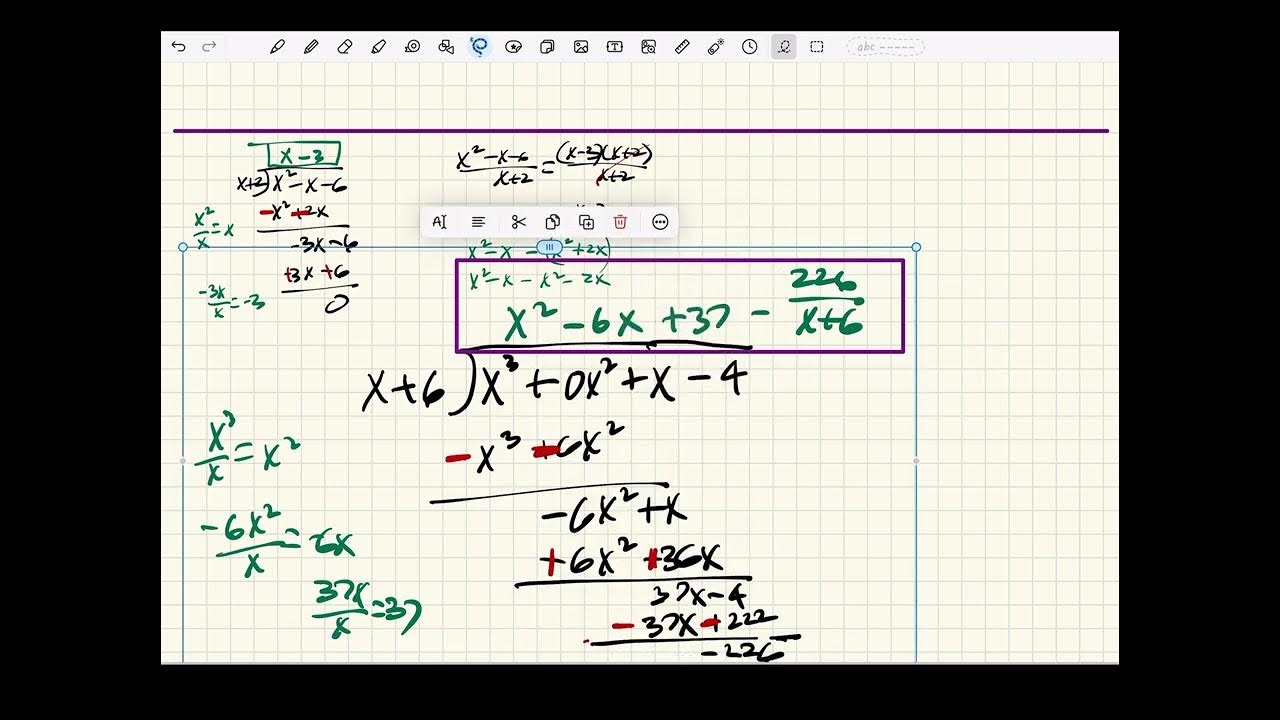 abc
x - 3
x+2) x² - x - 6
- x² - 2x
-3x - 6
+3x + 6
0
x²/x = x
-3x/x = -3
x² - x - 6 / x+2 = (x-3)(x+2) / x+2
x² - x - (x² + 2x)
x² - x - x² - 2x
x² - 6x + 37 - 226/x+6
x + 6 ) x³ + 0x² + x - 4
- x³ - 6x²
-6x² + x
+ 6x² + 36x
37x - 4
- 37x - 222
-226
x³/x = x²
-6x²/x = -6x
37x/x = 37